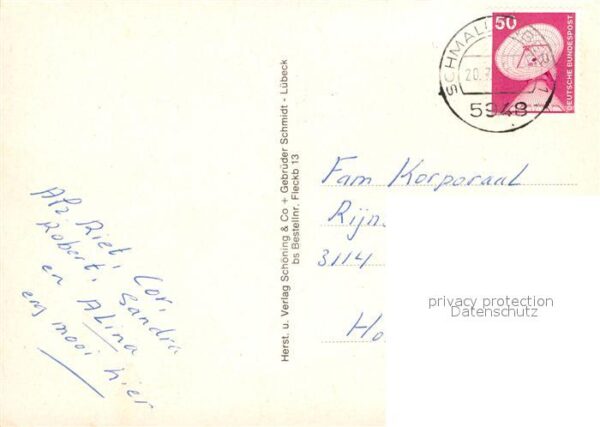 50
DEUTSCHE BUNDESPOST
20.7
5948
Herst. u. Verlag Schöning & Co + Gebrüder Schmidt - Lübeck
bs Bestellnr. Fleckb 13
Fam Korporaal
Rijn
3114
Ho
privacy protection
Datenschutz
Afz Riet, Cor,
Robert, Sandra
en Alina
erg mooi hier